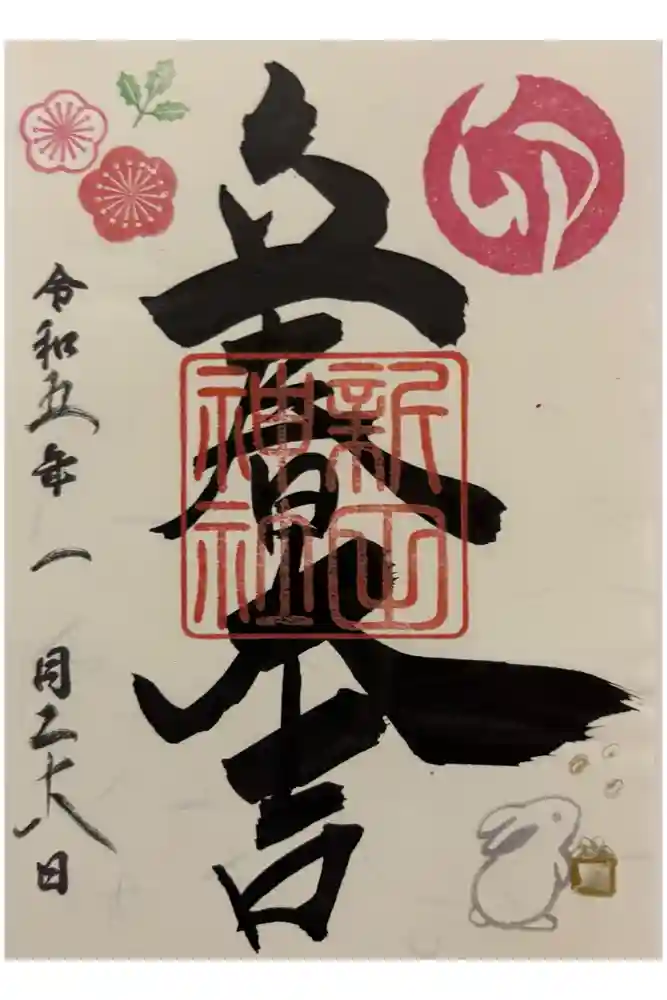 卯
立春大吉
新山
神社
令和五年一月二十八日